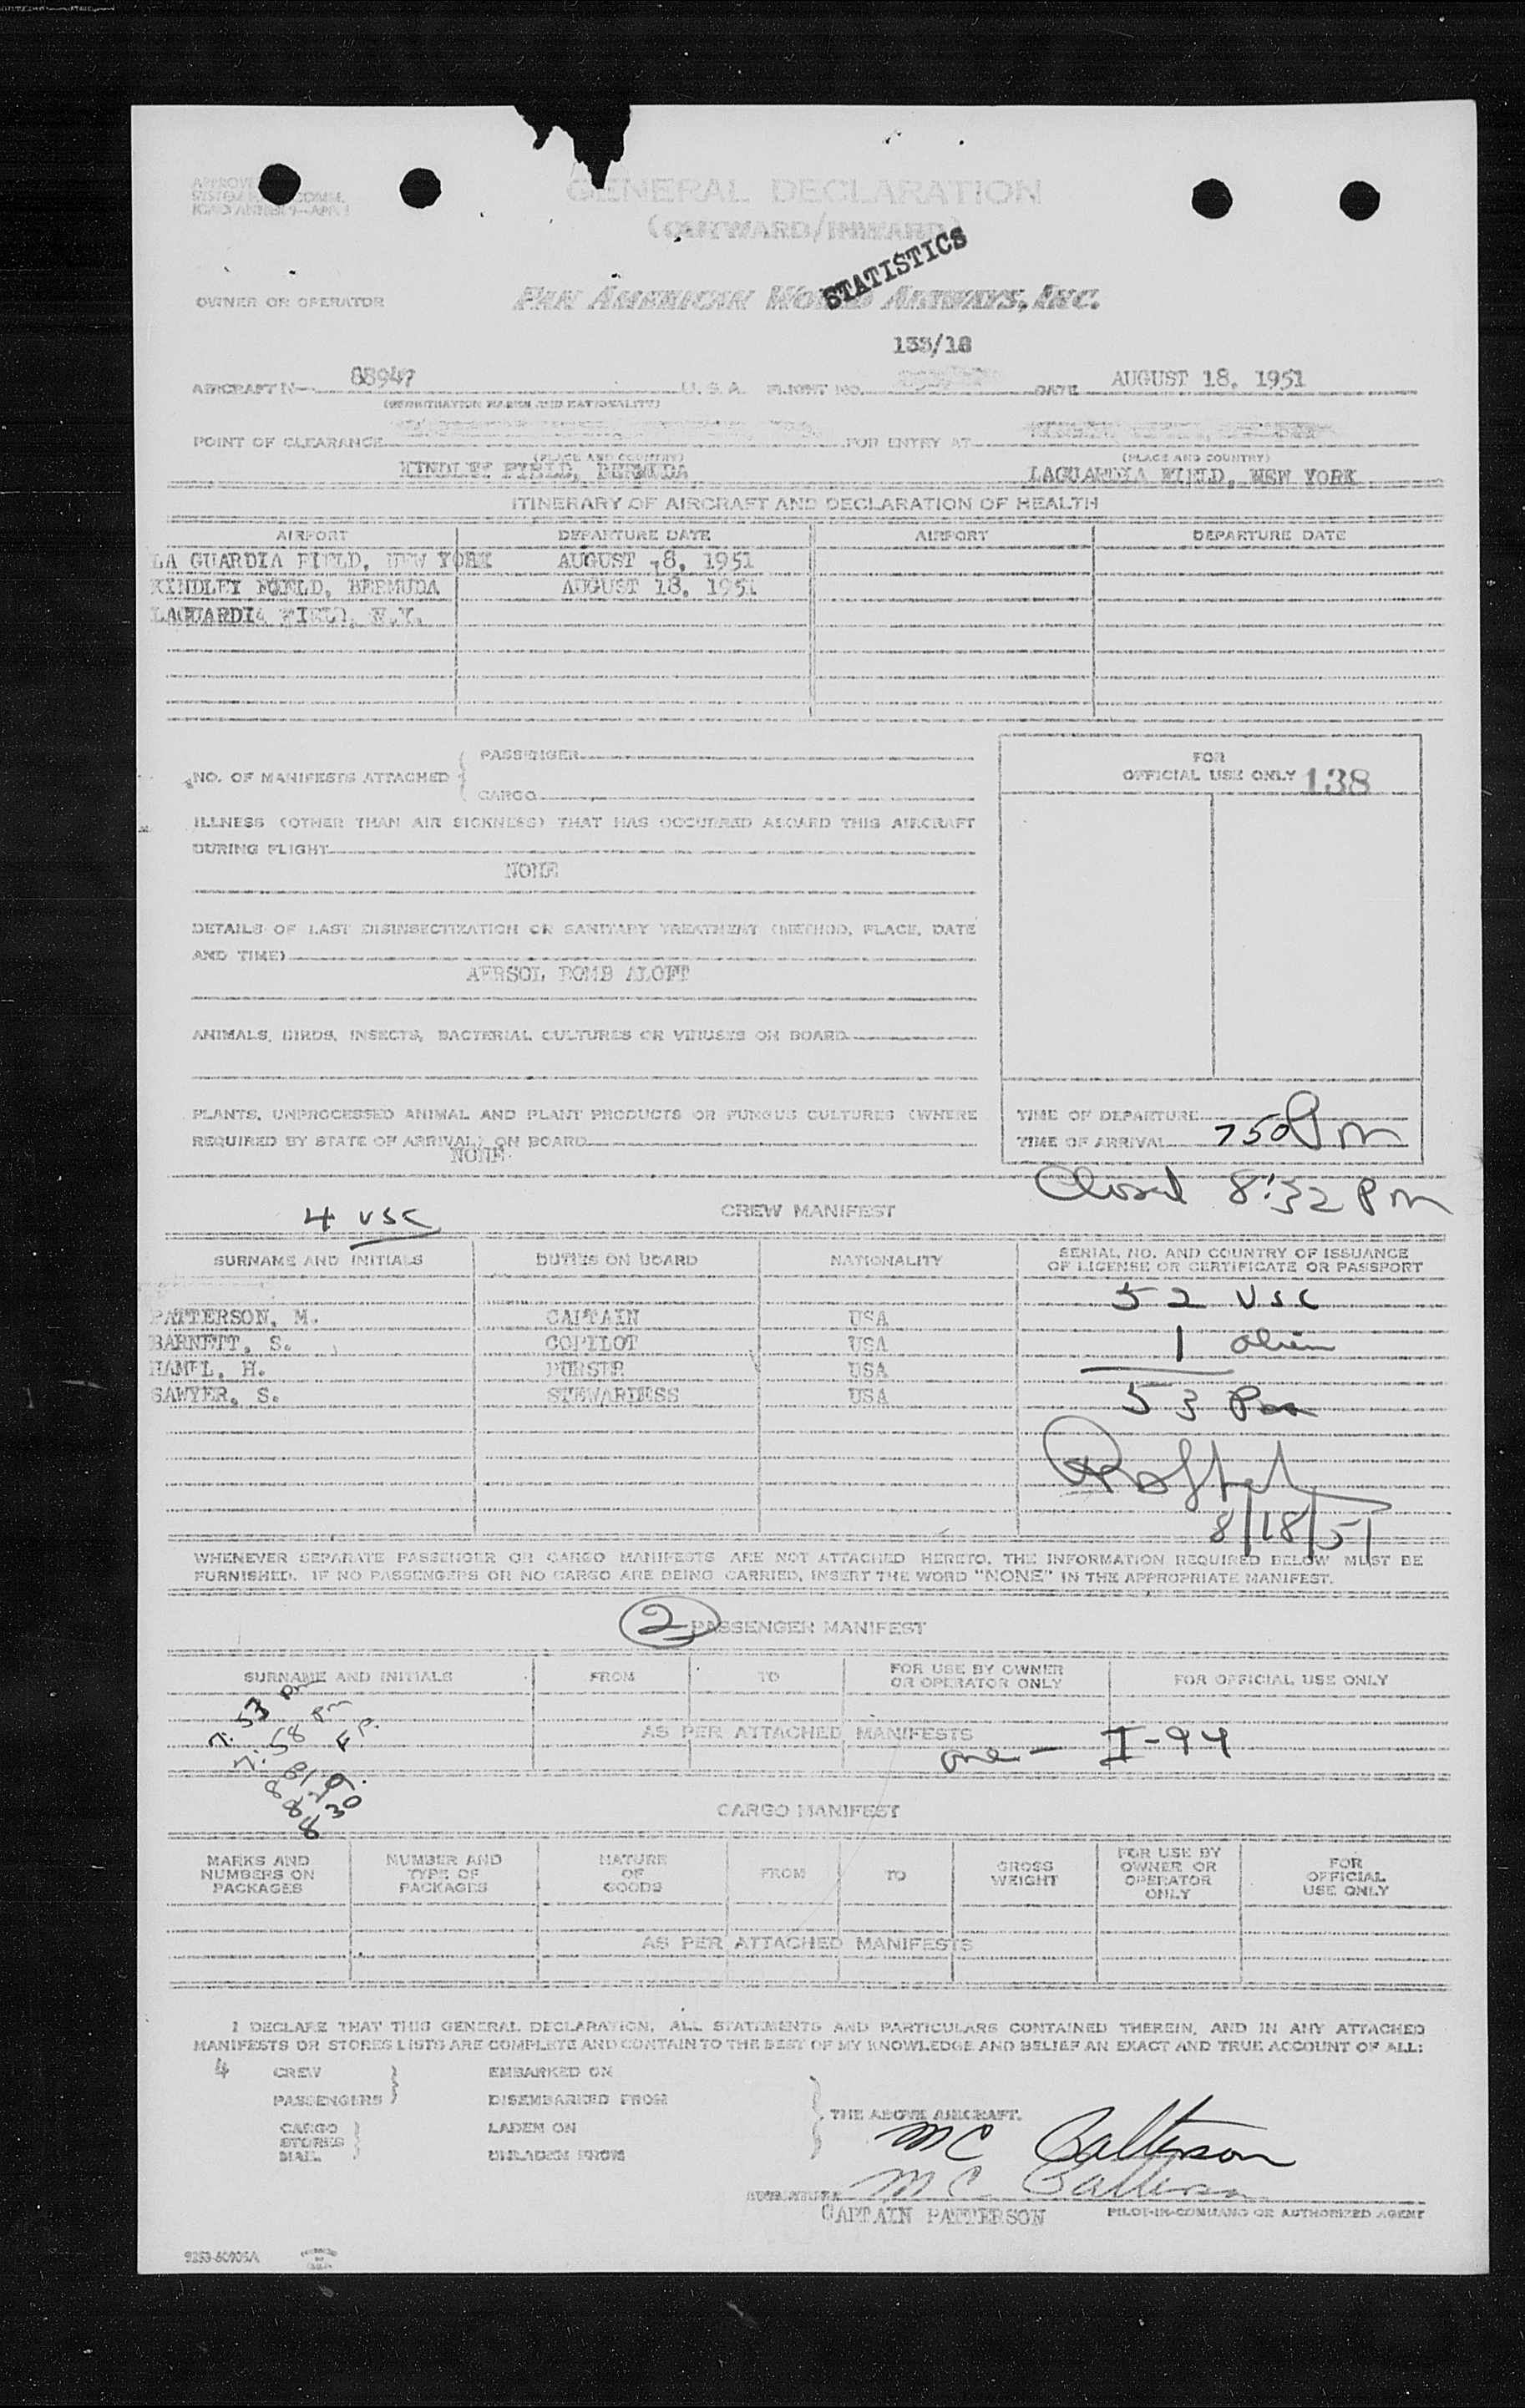 GENERAL DECLARATION
(OUTWARD/INWARD)
STATISTICS
OWNER OR OPERATOR PAN AMERICAN WORLD AIRWAYS, INC.
133/18
AIRCRAFT N- 88947 U. S. A. FLIGHT NO. DATE AUGUST 18, 1951
(REGISTRATION MARKS AND NATIONALITY)
POINT OF CLEARANCE FOR ENTRY AT
(PLACE AND COUNTRY) (PLACE AND COUNTRY)
KINDLEY FIELD, BERMUDA LAGUARDIA FIELD, NEW YORK
ITINERARY OF AIRCRAFT AND DECLARATION OF HEALTH
AIRPORT DEPARTURE DATE AIRPORT DEPARTURE DATE
LA GUARDIA FIELD, NEW YORK AUGUST 18, 1951
KINDLEY FIELD, BERMUDA AUGUST 18, 1951
LAGUARDIA FIELD, N.Y.
NO. OF MANIFESTS ATTACHED { PASSENGER
CARGO
FOR
OFFICIAL USE ONLY 138
ILLNESS (OTHER THAN AIR SICKNESS) THAT HAS OCCURRED ABOARD THIS AIRCRAFT
DURING FLIGHT
NONE
DETAILS OF LAST DISINSECTIZATION OR SANITARY TREATMENT (METHOD, PLACE, DATE
AND TIME)
AERSOL BOMB ALOFT
ANIMALS, BIRDS, INSECTS, BACTERIAL CULTURES OR VIRUSES ON BOARD
PLANTS, UNPROCESSED ANIMAL AND PLANT PRODUCTS OR FUNGUS CULTURES (WHERE
REQUIRED BY STATE OF ARRIVAL) ON BOARD
NONE
TIME OF DEPARTURE
TIME OF ARRIVAL 750 Pm
Closed 8:32 Pm
4 USC
CREW MANIFEST
SURNAME AND INITIALS DUTIES ON BOARD NATIONALITY SERIAL NO. AND COUNTRY OF ISSUANCE
OF LICENSE OR CERTIFICATE OR PASSPORT
52 USC
PATTERSON, M. CAPTAIN USA
BARNETT, S. COPILOT USA 1 alien
HAMEL, H. PURSER USA
SAWYER, S. STEWARDESS USA 53
8/18/51
WHENEVER SEPARATE PASSENGER OR CARGO MANIFESTS ARE NOT ATTACHED HERETO, THE INFORMATION REQUIRED BELOW MUST BE
FURNISHED. IF NO PASSENGERS OR NO CARGO ARE BEING CARRIED, INSERT THE WORD "NONE" IN THE APPROPRIATE MANIFEST.
2 PASSENGER MANIFEST
SURNAME AND INITIALS FROM TO FOR USE BY OWNER
OR OPERATOR ONLY FOR OFFICIAL USE ONLY
7:53 pm
7:58 pm
AS PER ATTACHED MANIFESTS
one - I-94
8 30
CARGO MANIFEST
MARKS AND
NUMBERS ON
PACKAGES
NUMBER AND
TYPE OF
PACKAGES
NATURE
OF
GOODS
FROM
TO
GROSS
WEIGHT
FOR USE BY
OWNER OR
OPERATOR
ONLY
FOR
OFFICIAL
USE ONLY
AS PER ATTACHED MANIFESTS
I DECLARE THAT THIS GENERAL DECLARATION, ALL STATEMENTS AND PARTICULARS CONTAINED THEREIN, AND IN ANY ATTACHED
MANIFESTS OR STORES LISTS ARE COMPLETE AND CONTAIN TO THE BEST OF MY KNOWLEDGE AND BELIEF AN EXACT AND TRUE ACCOUNT OF ALL:
4 CREW EMBARKED ON
PASSENGERS DISEMBARKED FROM
CARGO LADEN ON
STORES
MAIL UNLADEN FROM
THE ABOVE AIRCRAFT.
MC Patterson
SIGNATURE MC Patterson
CAPTAIN PATTERSON PILOT-IN-COMMAND OR AUTHORIZED AGENT